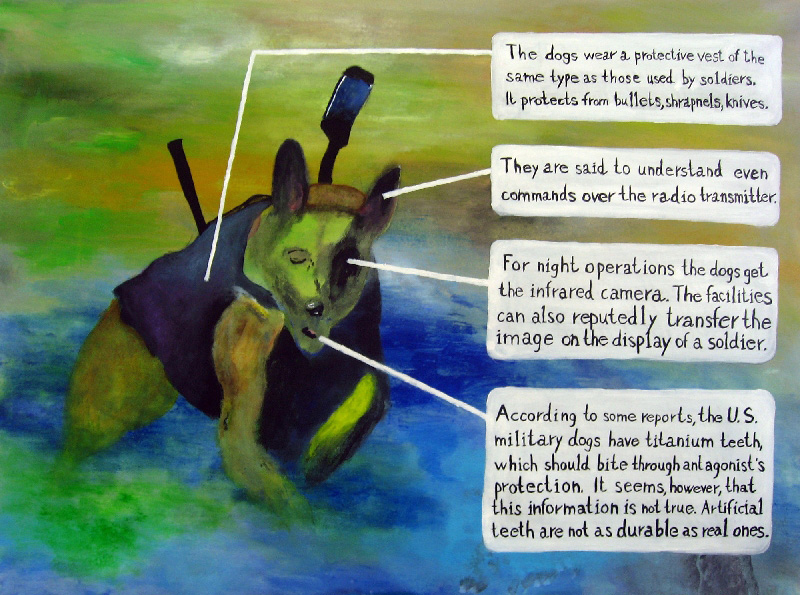 The dogs wear a protective vest of the
same type as those used by soldiers.
It protects from bullets, shrapnels, knives.
They are said to understand even
commands over the radio transmitter.
For night operations the dogs get
the infrared camera. The facilities
can also reputedly transfer the
image on the display of a soldier.
According to some reports, the U.S.
military dogs have titanium teeth,
which should bite through antagonist's
protection. It seems, however, that
this information is not true. Artificial
teeth are not as durable as real ones.